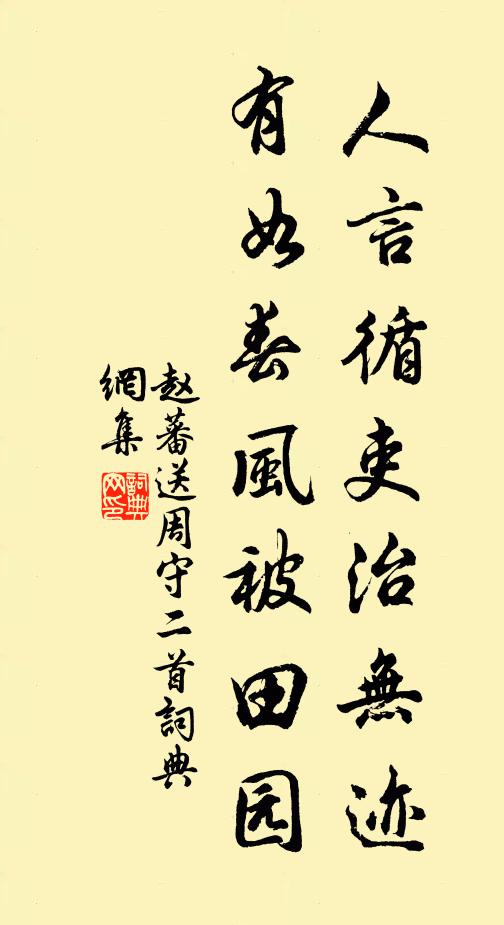 人言循吏治無迹
有如春風被田园
赵蕃送周守二首詞典
網集
詞典網印